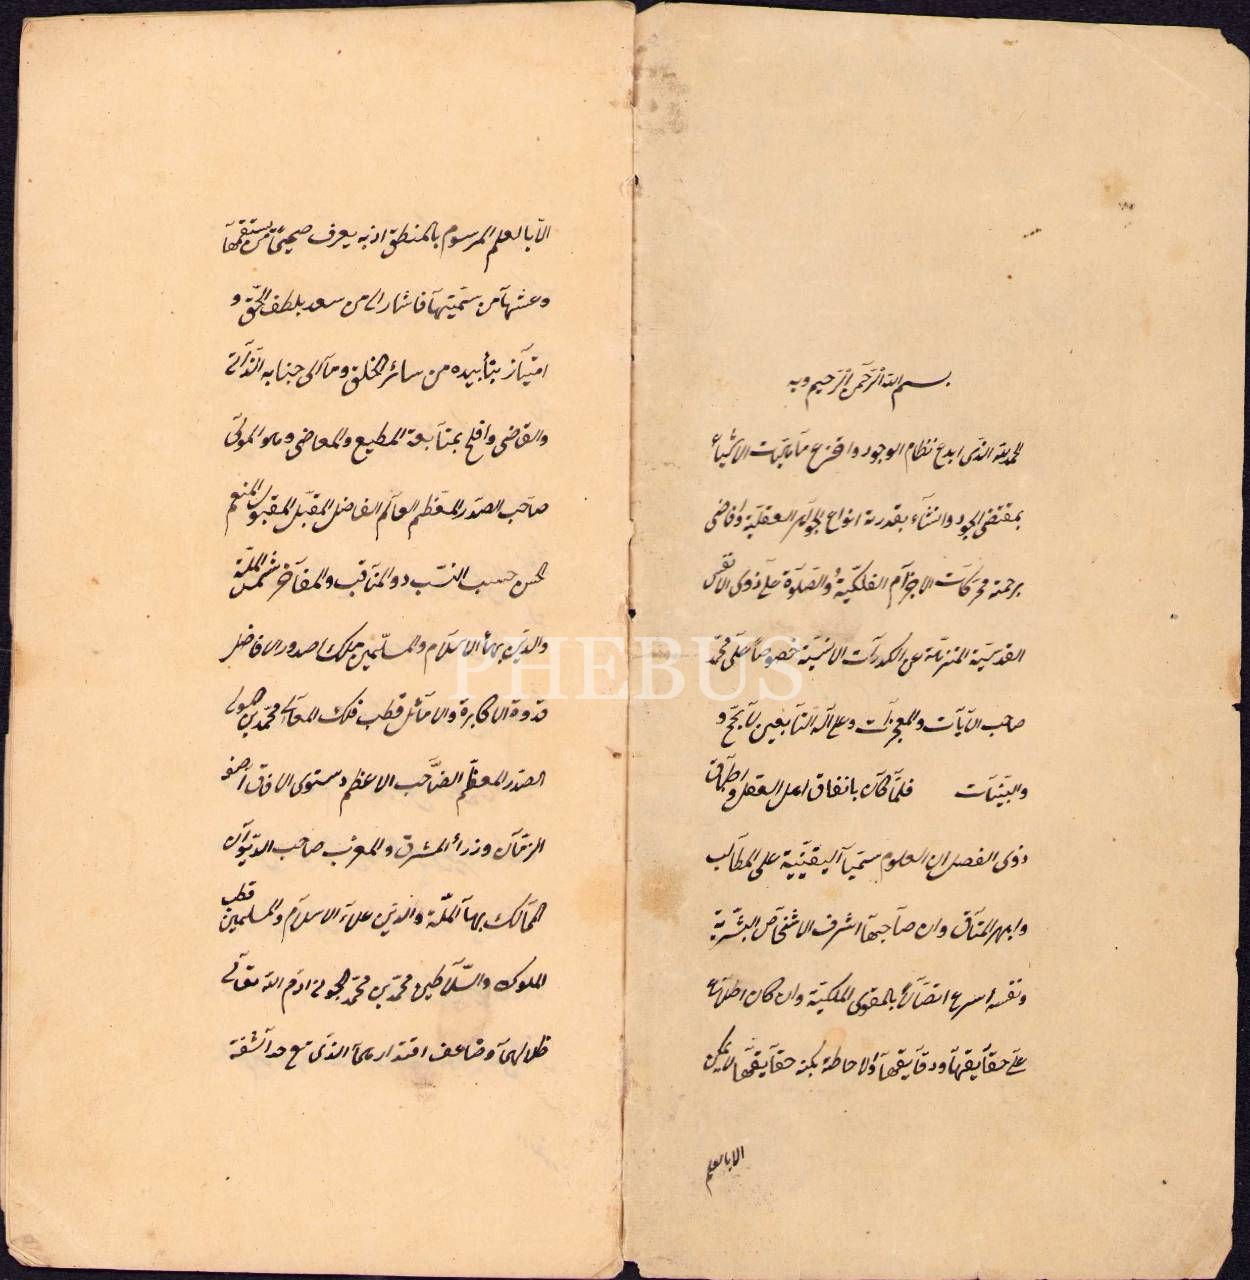 بسم الله الرَّحمن الرَّحيم وبه
الحمد لله الذى ابدع نظام الوجود واخترع مآهيّات الاشياء
بمقتضى الجود وانشاء بقدرته انواع الجواهر العقليّة وافاض
برحمته محركات الاجرآم الفلكيّة والصّلوة على ذوى الانفس
القدسيّة المنزهة عن الكدورات الانسيّة خصوصاً على محمّد
صاحب الآيآت والمعجزآت وعلى آله التابعين للحجج و
والبيّنات فلمّا كآن باتفاق اهل العقل واطباق
ذوى الفضل ان العلوم سيّمآ اليقينيّة على المطالب
وابهر المناقب وان صآحبهآ اشرف الاشخاص البشريّة
ونفسه اسرع اتصآلاً بالقوى الملكيّة وان كان اطلاع
على حقآيقهآ ودقآيقهآ والاحاطة بكنه حقآيقهآ لا يمكن
الا بالعلم
الّا بالعلم المرسوم بالمنطق اذ به يعرف صحيحهآ من سقيمهآ
وغثهآ من سمينهآ فاشار الى من سعد بلطف الحق و
امتيآز بتأييده من سائر الخلق ومآل الى جنابه الدّآنى
والقاصى وافلح بمتآبعة المطيع والعاصى وهو المولى
صآحب الصّدر المعظم العآلم الفاضل المقبل المقبول المنعم
المحسن حسيب النسيب ذو المناقب والمفآخر شمس الملّة
والدّين بهاء الاسلام والمسلّمين ملك صدور الافاضل
قدوة الاكابرة والامآثل قطب فلك المعالى محمّد بن المولى
الصّدر المعظّم الصّآحب الاعظم دستور الآفاق آصف
الزمآن وزراء المشرق والمغرب صاحب الديوآن
الممالك بهآء الملّة والدين علاء الاسلام والمسلمين قطب
الملوك والسّلاطين محمّد بن محمّد الجوينى ادام الله تعالى
ظلالهمآ وضاعف اقتدارهمآ الذى مع حدآثة